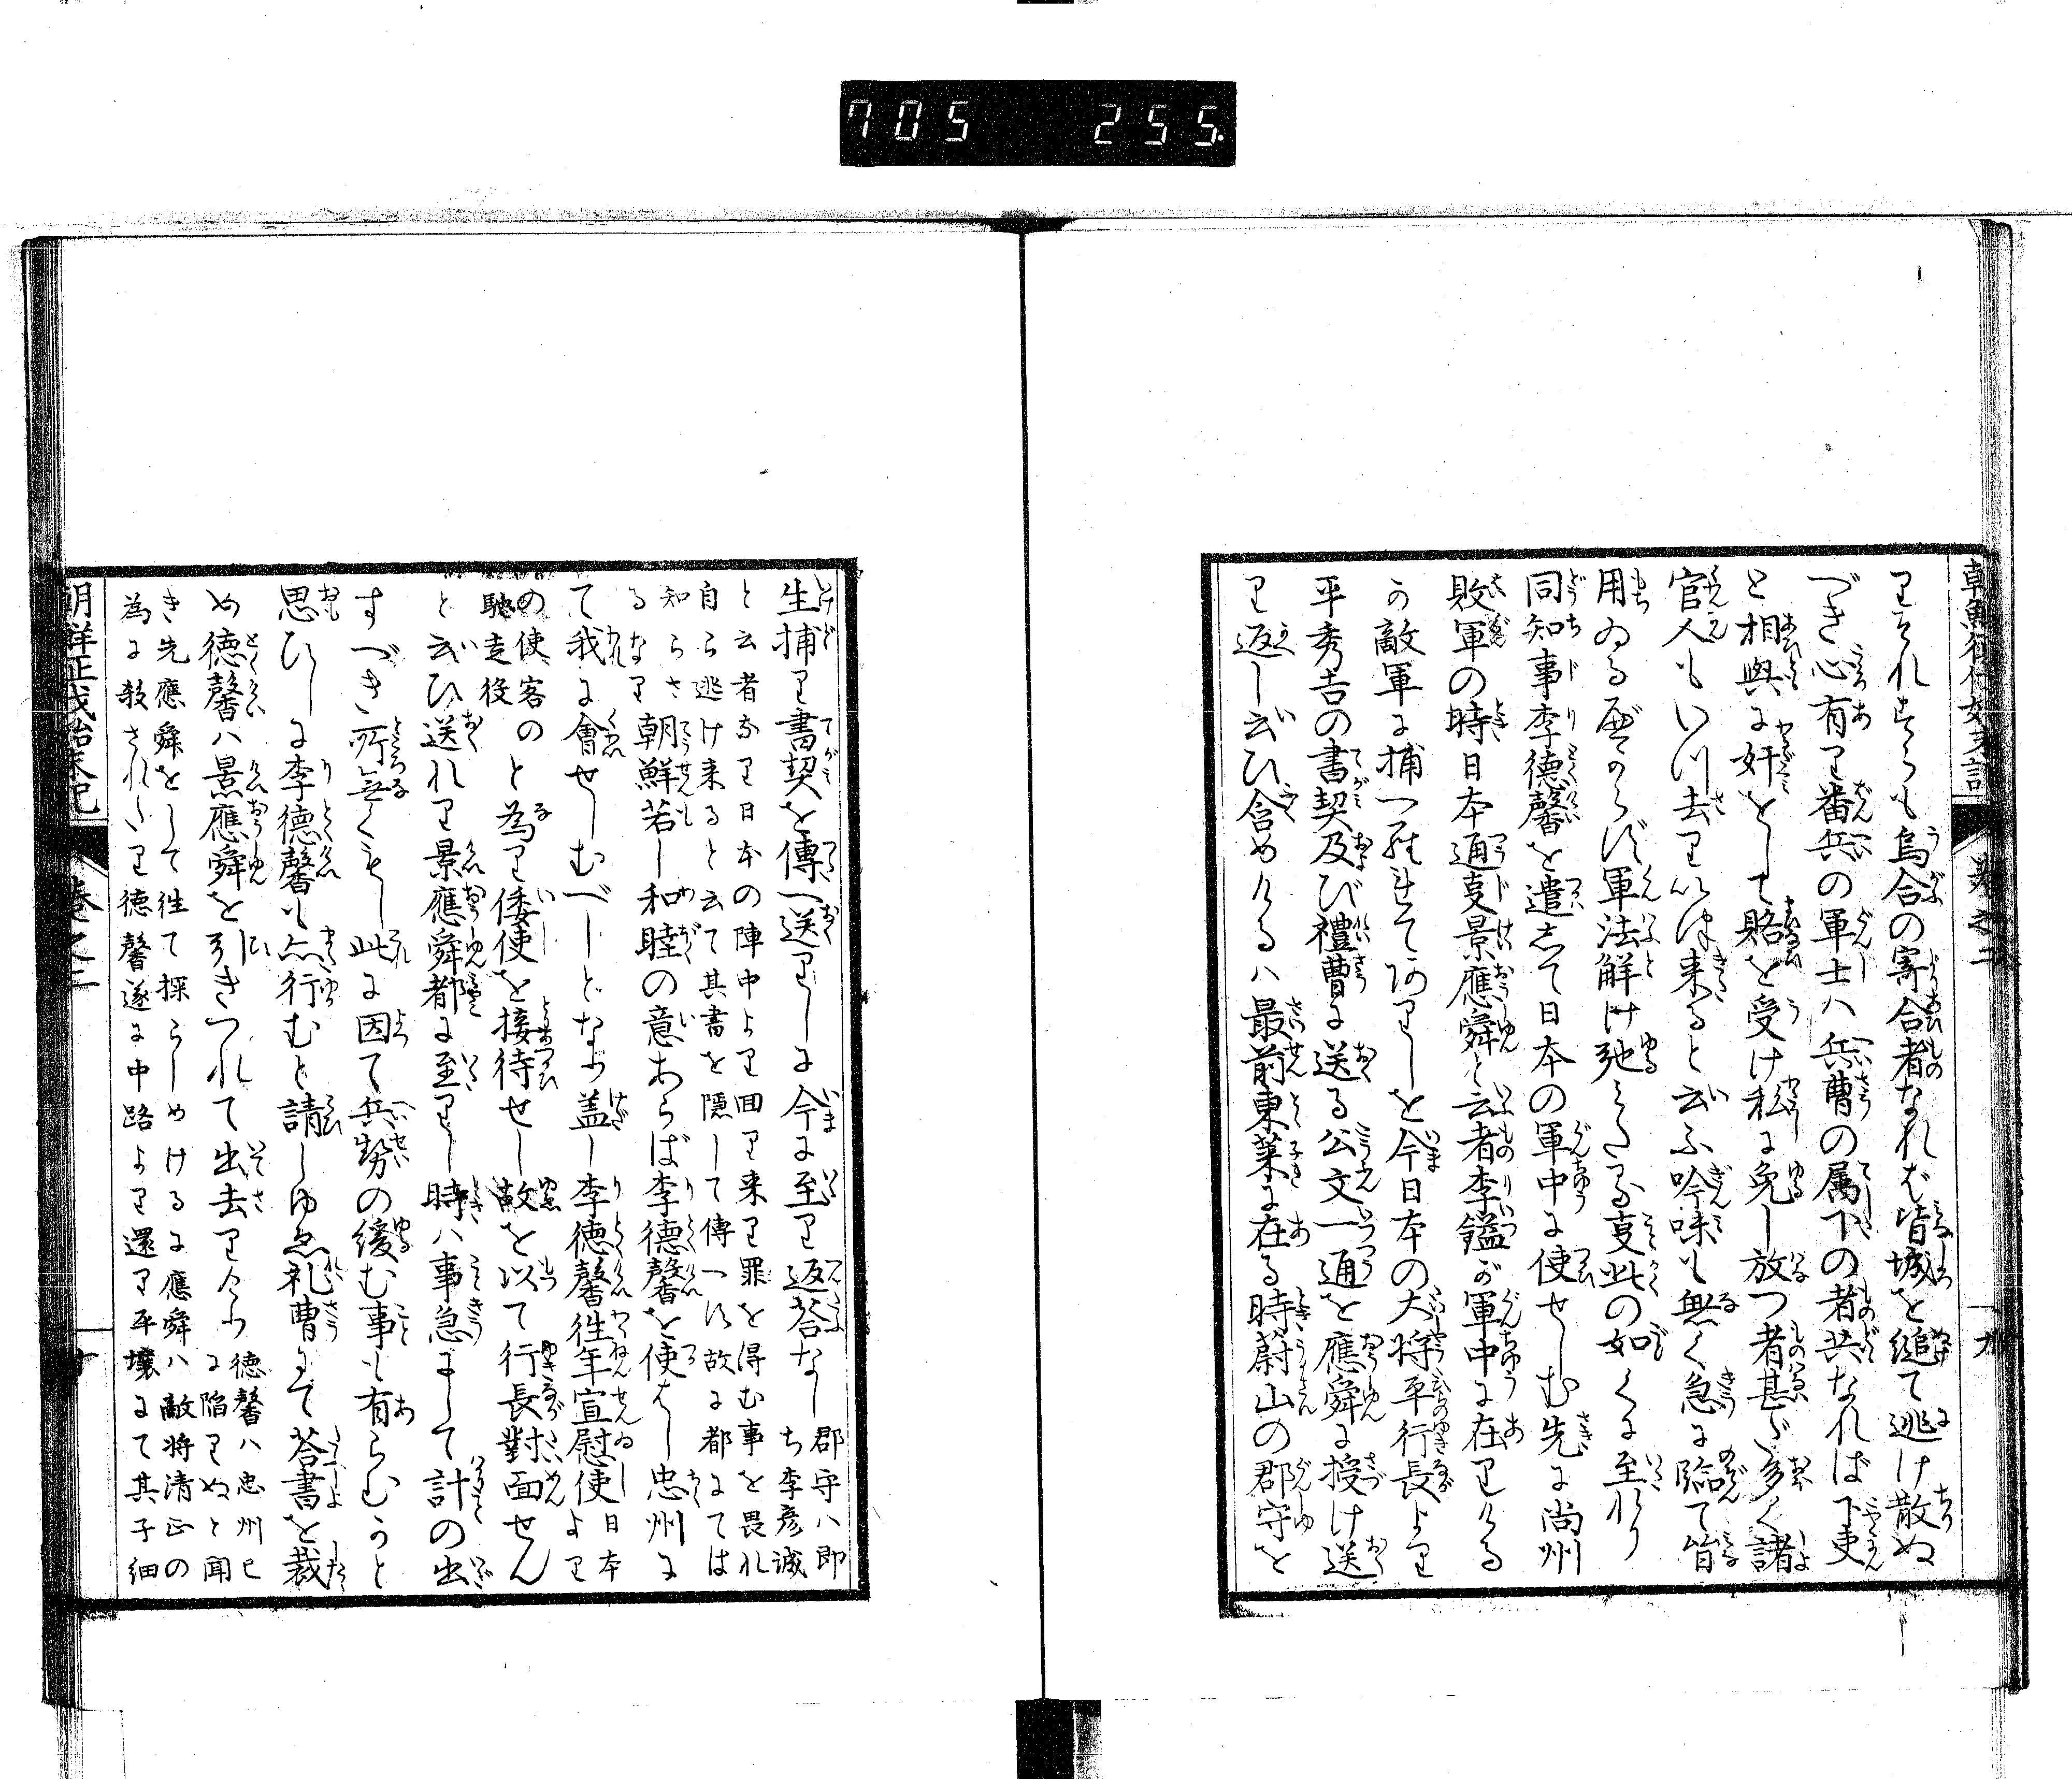 705 255.
りそれすらも烏合の寄合者なれば皆城を縋て逃け散ぬ
べき心有り番兵の軍士ハ兵曹の属下の者共なれば下吏
と相與に奸をして賂を受け私に免し放つ者甚だ多く諸
官人もいつ去りいつ来ると云ふ吟味も無く急に臨て皆
用ゐる べからず軍法解け弛みたる事此の如くに至れり
同知事李徳馨を遣して日本の軍中に使せしむ先に尚州
敗軍の時日本通事景應舜と云者李鎰が軍中に在りける
の敵軍に捕 ありしを今日本の大将平行長より
平秀吉の書契及び禮曹に送る公文一通を應舜に授け送
り返し云ひ含めけるハ最前東莱に在る時蔚山の郡守を
朝鮮征伐始末記
巻之二
十九
生捕り書契を傳へ送りしに今に至り返荅なし郡守ハ即ち李彦誠
と云者なり日本の陣中より囬り来り罪を得む事を畏れ
自ら逃け来ると云て其書を隠して傳へず故に都にては
知らさるなり朝鮮若し和睦の意あらば李徳馨を使はし忠州に
て我に會せしむべしとなり盖し李徳馨往年宣慰使日本より
の使客の馳走役と為り倭使を接待せし故を以て行長對面せん
と云ひ送れり景應舜都に至りし時ハ事急にして計の出
すべき所無くもし此に因て兵勢の緩む事も有らむかと
思ひしに李徳馨も亦行むと請しゆゑ礼曹にて荅書を裁
め徳馨ハ景應舜を引きつれて出去り 徳馨ハ忠州已に陥りぬと聞
き先應舜をして徃て探らしめけるに應舜ハ敵将清正の
為に殺されたり徳馨遂に中路より還り平壌にて其子細
朝鮮征伐始末記
巻之二